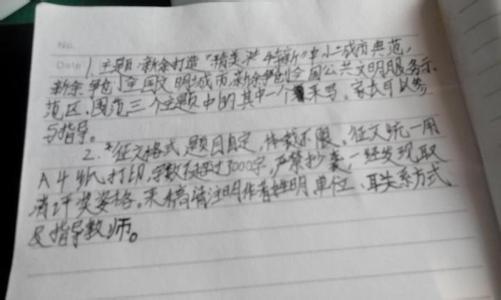 No.
Date 1. 主题:新余打造"精美 特新"中小城市典范,
新余争创全国文明城市,新余争创全国公共文明服务示
范区,围绕三个主题中的其中一个来写,家长可以参
与指导。
2.*征文格式 题目自定,体裁不限,征文统一用
A4纸打印,字数不超过3000字,严禁抄袭一经发现取
消评奖资格。来稿请注明作者姓明单位、联系方式、
及指导教师。